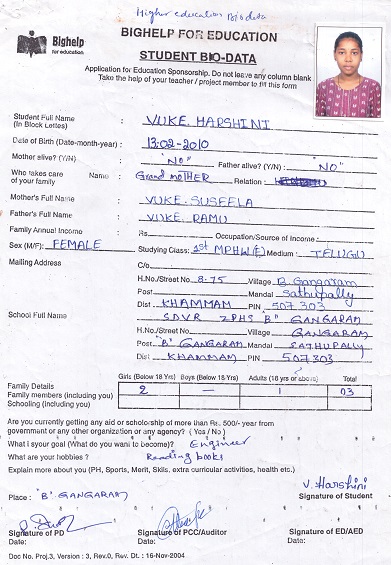 Higher education Biodata
Bighelp
for education
BIGHELP FOR EDUCATION
STUDENT BIO-DATA
Application for Education Sponsorship. Do not leave any column blank
Take the help of your teacher / project member to fill this form
Student Full Name (In Block Letters) : VUKE. HARSHINI
Date of Birth (Date-month-year) : 13-02-2010
Mother alive? (Y/N) : "NO" Father alive? (Y/N) : "NO"
Who takes care of your family Name : Grand MOTHER Relation :
Mother's Full Name : VUKE. SUSEELA
Father's Full Name : VUKE. RAMU
Family Annual Income : Rs. Occupation/Source of Income :
Sex (M/F): FEMALE Studying Class: 1st MPHW(F) Medium : TELUGU
Mailing Address C/o
H.No./Street No. 8-75 Village B. Gangaram
Post Mandal Sathupally
Dist KHAMMAM PIN 507303
School Full Name : SDVR ZPHS "B" GANGARAM
H.No./Street No. Village GANGARAM
Post "B" GANGARAM Mandal SATHUPALLY
Dist KHAMMAM PIN 507303
Girls (Below 18 Yrs) Boys (Below 18 Yrs) Adults (18 yrs or above) Total
Family Details
Family members (including you) 2 — 1 03
Schooling (including you)
Are you currently getting any aid or scholorship of more than Rs. 500/- year from
government or any other organization or any agency? (Yes / No)
What is your goal (What do you want to become)? Engineer
What are your hobbies ? Reading books
Explain more about you (PH, Sports, Merit, Skills, extra curricular activities, health etc.)
V. Harshini
Place : 'B' GANGARAM Signature of Student
Signature of PD Signature of PCC/Auditor Signature of ED/AED
Date: Date: Date:
Doc No. Proj.3, Version : 3, Rev.0, Rev. Dt. : 16-Nov-2004